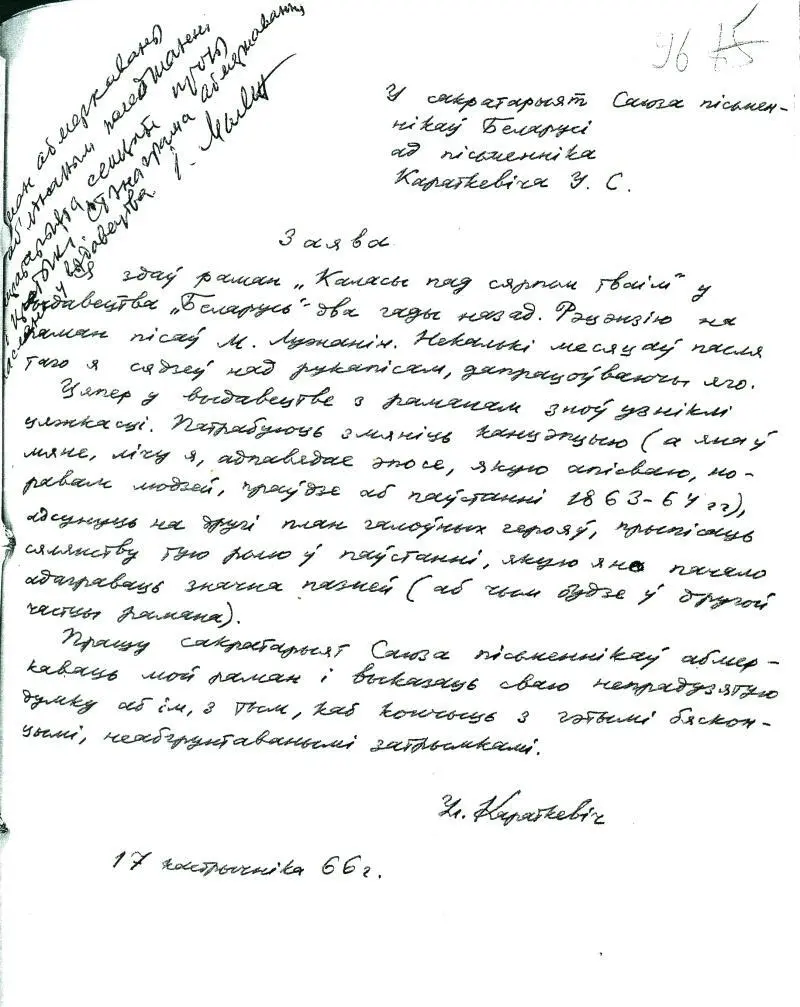 96
У сакратарыят Саюза пісьмен-
нікаў Беларусі
ад пісьменніка
Караткевіча У. С.
раман абмеркаваны
на аб'яднаным пасяджэнні
секцыі прозы
і крытыкі. Стэнаграма абмеркавання
выдавецтва. І.
Заява
Я здаў раман „Каласы пад сярпом тваім" у
выдавецтва „Беларусь" два гады назад. Рэцэнзію на
раман пісаў М. Лужанін. Некалькі месяцаў пасля
таго я сядзеў над рукапісам, дапрацоўваючы яго.
Цяпер у выдавецтве з раманам зноў узніклі
цяжкасці. Патрабуюць змяніць канцэпцыю (а яна ў
мяне, лічу я, адпавядае эпосе, якую апісваю, но-
равам людзей, праўдзе аб паўстанні 1863-64 гг),
адсунуць на другі план галоўных герояў, прыпісаць
сялянству тую ролю ў паўстанні, якую яно пачало
адаграваць значна пазней (аб чым будзе ў другой
частцы рамана).
Прашу сакратарыят Саюза пісьменнікаў абмер-
каваць мой раман і выказаць сваю непрадузятую
думку аб ім, з тым, каб кончыць з гэтымі бяскон-
цымі, неабгрунтаванымі затрымкамі.
Ул. Караткевіч
17 кастрычніка 66 г.